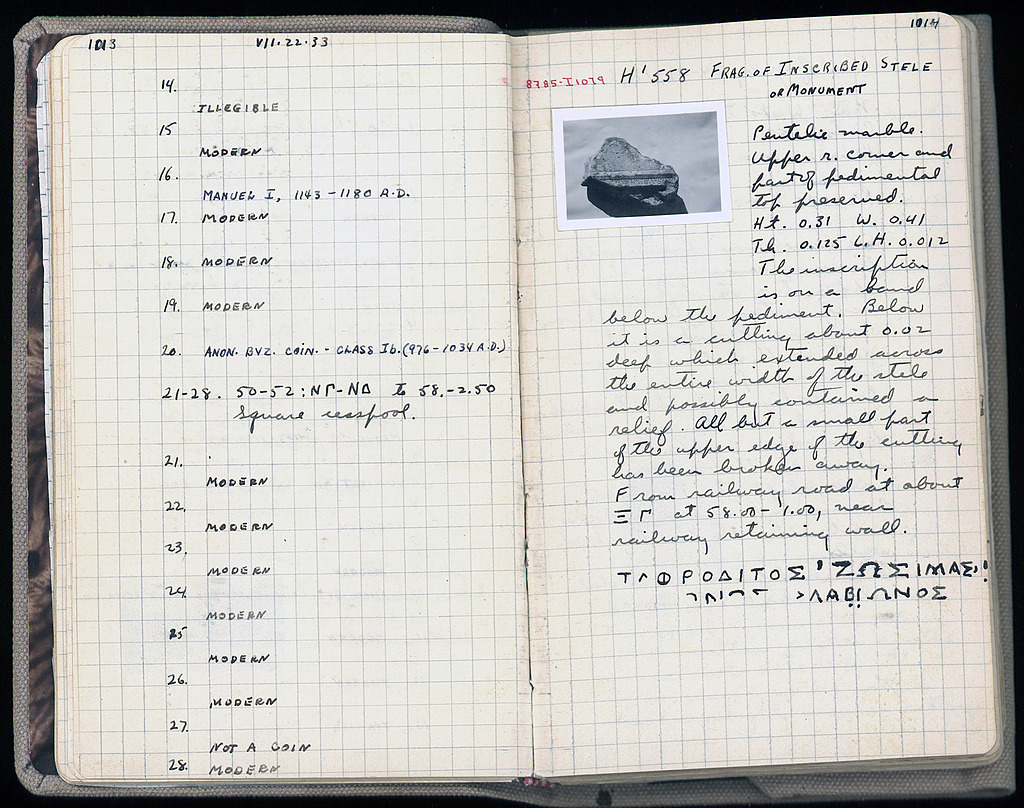 1013
VII.22.33
14.
ILLEGIBLE
15
MODERN
16.
MANUEL I, 1143-1180 A.D.
17. MODERN
18. MODERN
19. MODERN
20. ANON. BYZ. COIN. - CLASS Ib. (976-1034 A.D.)
21-28. 50-52: ΝΓ-ΝΔ 58.-2.50
Square cesspool.
21.
MODERN
22.
MODERN
23.
MODERN
24
MODERN
25
MODERN
26.
MODERN
27.
NOT A COIN
28. MODERN
1014
8785-I1079 H'558 FRAG. OF INSCRIBED STELE
OR MONUMENT
Pentelic marble.
Upper r. corner and
part of pedimental
top preserved.
Ht. 0.31 W. 0.41
Th. 0.125 L.H. 0.012
The inscription
is on a band
below the pediment. Below
it is a cutting about 0.02
deep which extended across
the entire width of the stele
and possibly contained a
relief. All but a small part
of the upper edge of the cutting
has been broken away.
From railway road at about
ΞΓ at 58.00-1.00, near
railway retaining wall.
ΦΡΟΔΙΤΟΣ ' ΖΩΣΙΜΑΣ
ΛΑΒΙΩΝΟΣ